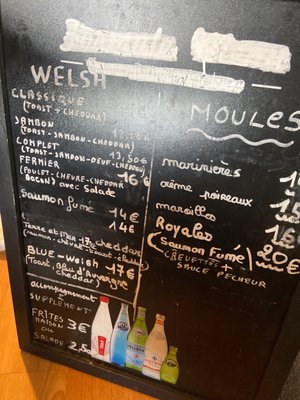 WELSH
CLASSIQUE
(TOAST + CHEDDAR)
JAMBON 12,50€
(TOAST-JAMBON-CHEDDAR)
COMPLET 13,50€
(TOAST-JAMBON-OEUF-CHEDDAR)
FERMIER 16€
(POULET-CHEVRE-CHEDDAR
BACON) avec Salade
Saumon fumé 14€
14€
Terre et Mer 17€ cheddar
BLUE-WELSH 17€
(Toast, Bleu d'Auvergne
cheddar)
accompagnement
SUPPLEMENT
FRITES
MAISON 3€
ou
SALADE 2,5
MOULES
marinières
crème poireaux
maroilles
Royales 20€
(Saumon Fumé
CREVETTE +
SAUCE PECHEUR